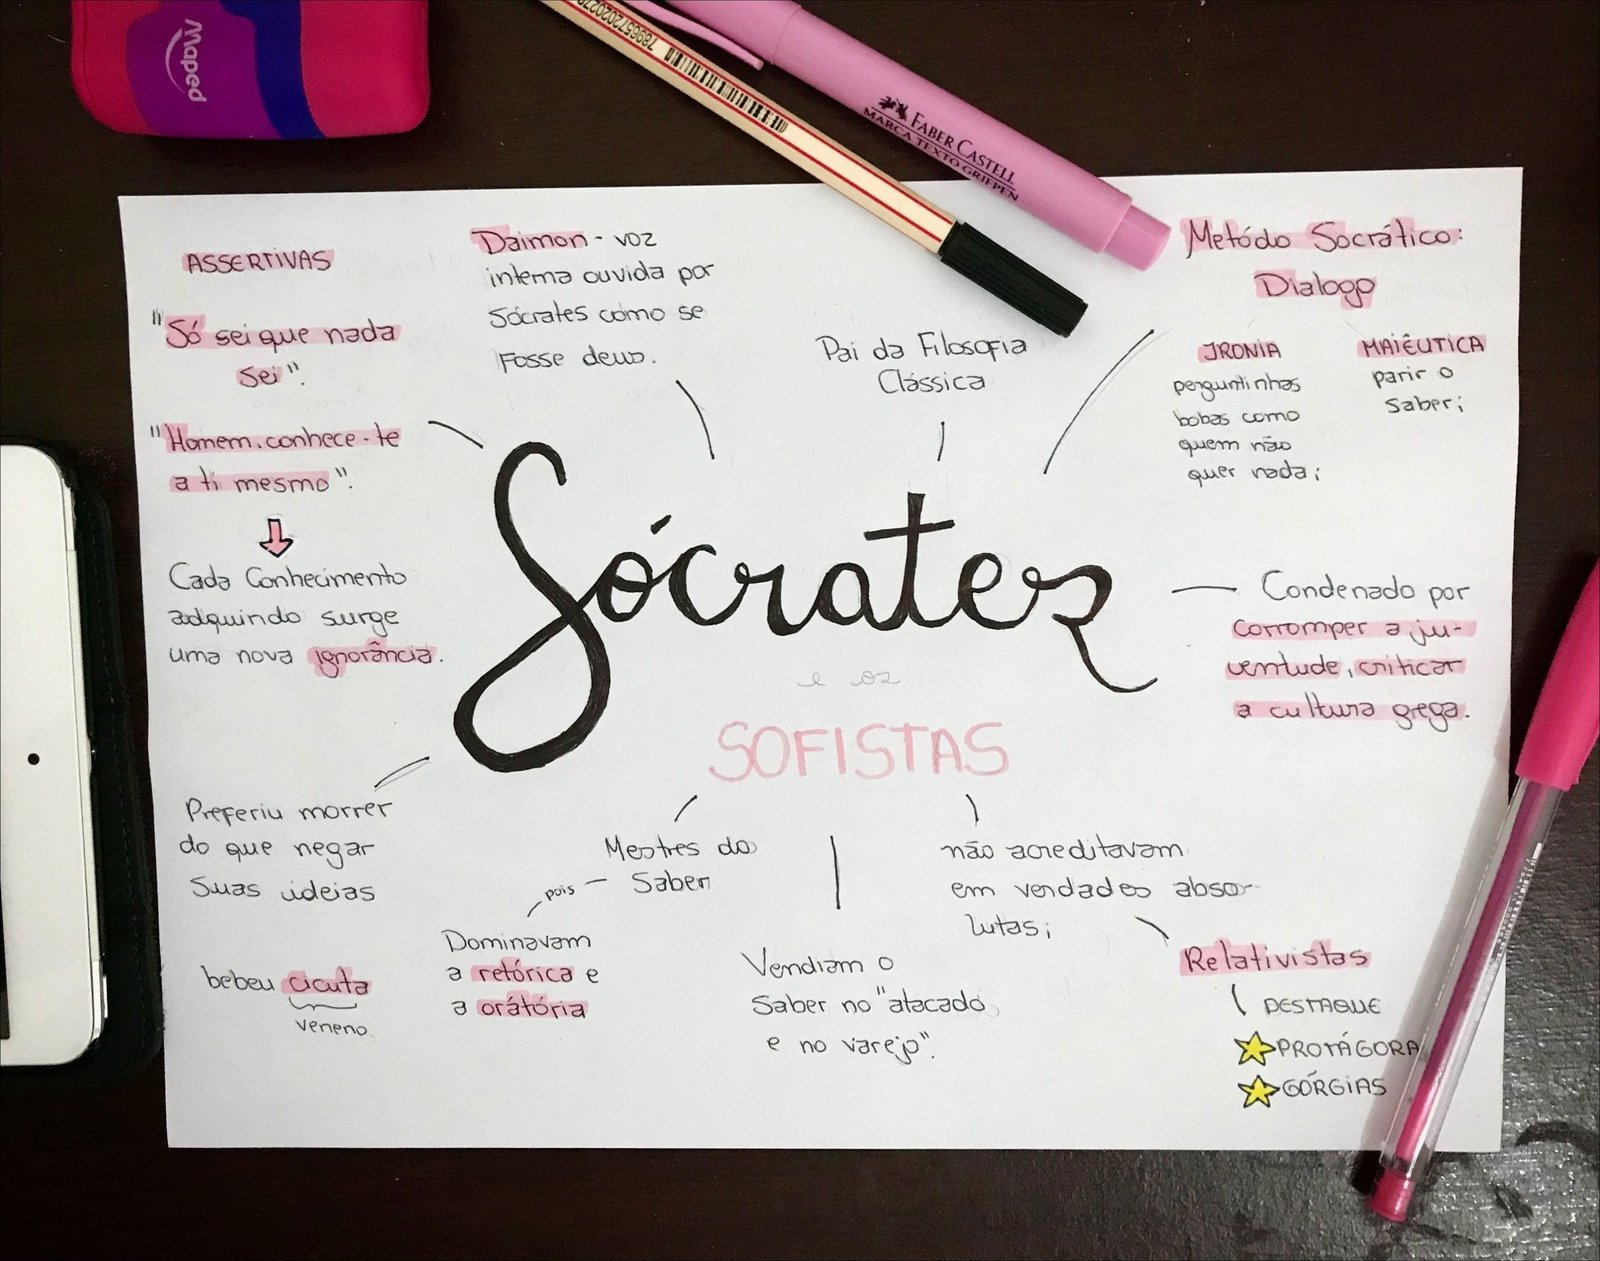 Maped
7896572020270
FABER CASTELL
MARCA TEXTO GRIFPEN
ASSERTIVAS
"Só sei que nada
sei".
"Homem. conhece-te
a ti mesmo".
Cada Conhecimento
adquirindo surge
uma nova ignorância.
Daimon - voz
interna ouvida por
Sócrates como se
Fosse deus.
Pai da Filosofia
Clássica
Metódo Socrático:
Dialogo
IRONIA
perguntinhas
bobas como
quem não
quer nada;
MAIÊUTICA
parir o
Saber;
Sócrates
e os
SOFISTAS
Condenado por
corromper a ju-
ventude, criticar
a cultura grega.
Preferiu morrer
do que negar
Suas ideias
bebeu cicuta
veneno
Mestres do
Saber
pois
Dominavam
a retórica e
a orátória
Vendiam o
Saber no "atacado
e no varejo".
não acreditavam
em verdades abso-
lutas;
Relativistas
DESTAQUE
PROTÁGORA
GÓRGIAS